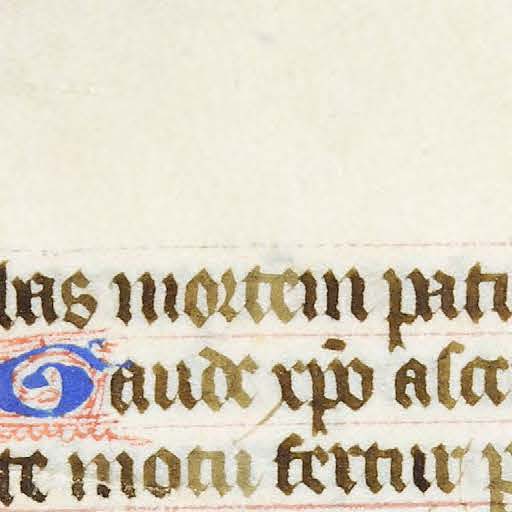 las mortem pati
Gaude xp̄o asce
te motu fertur p